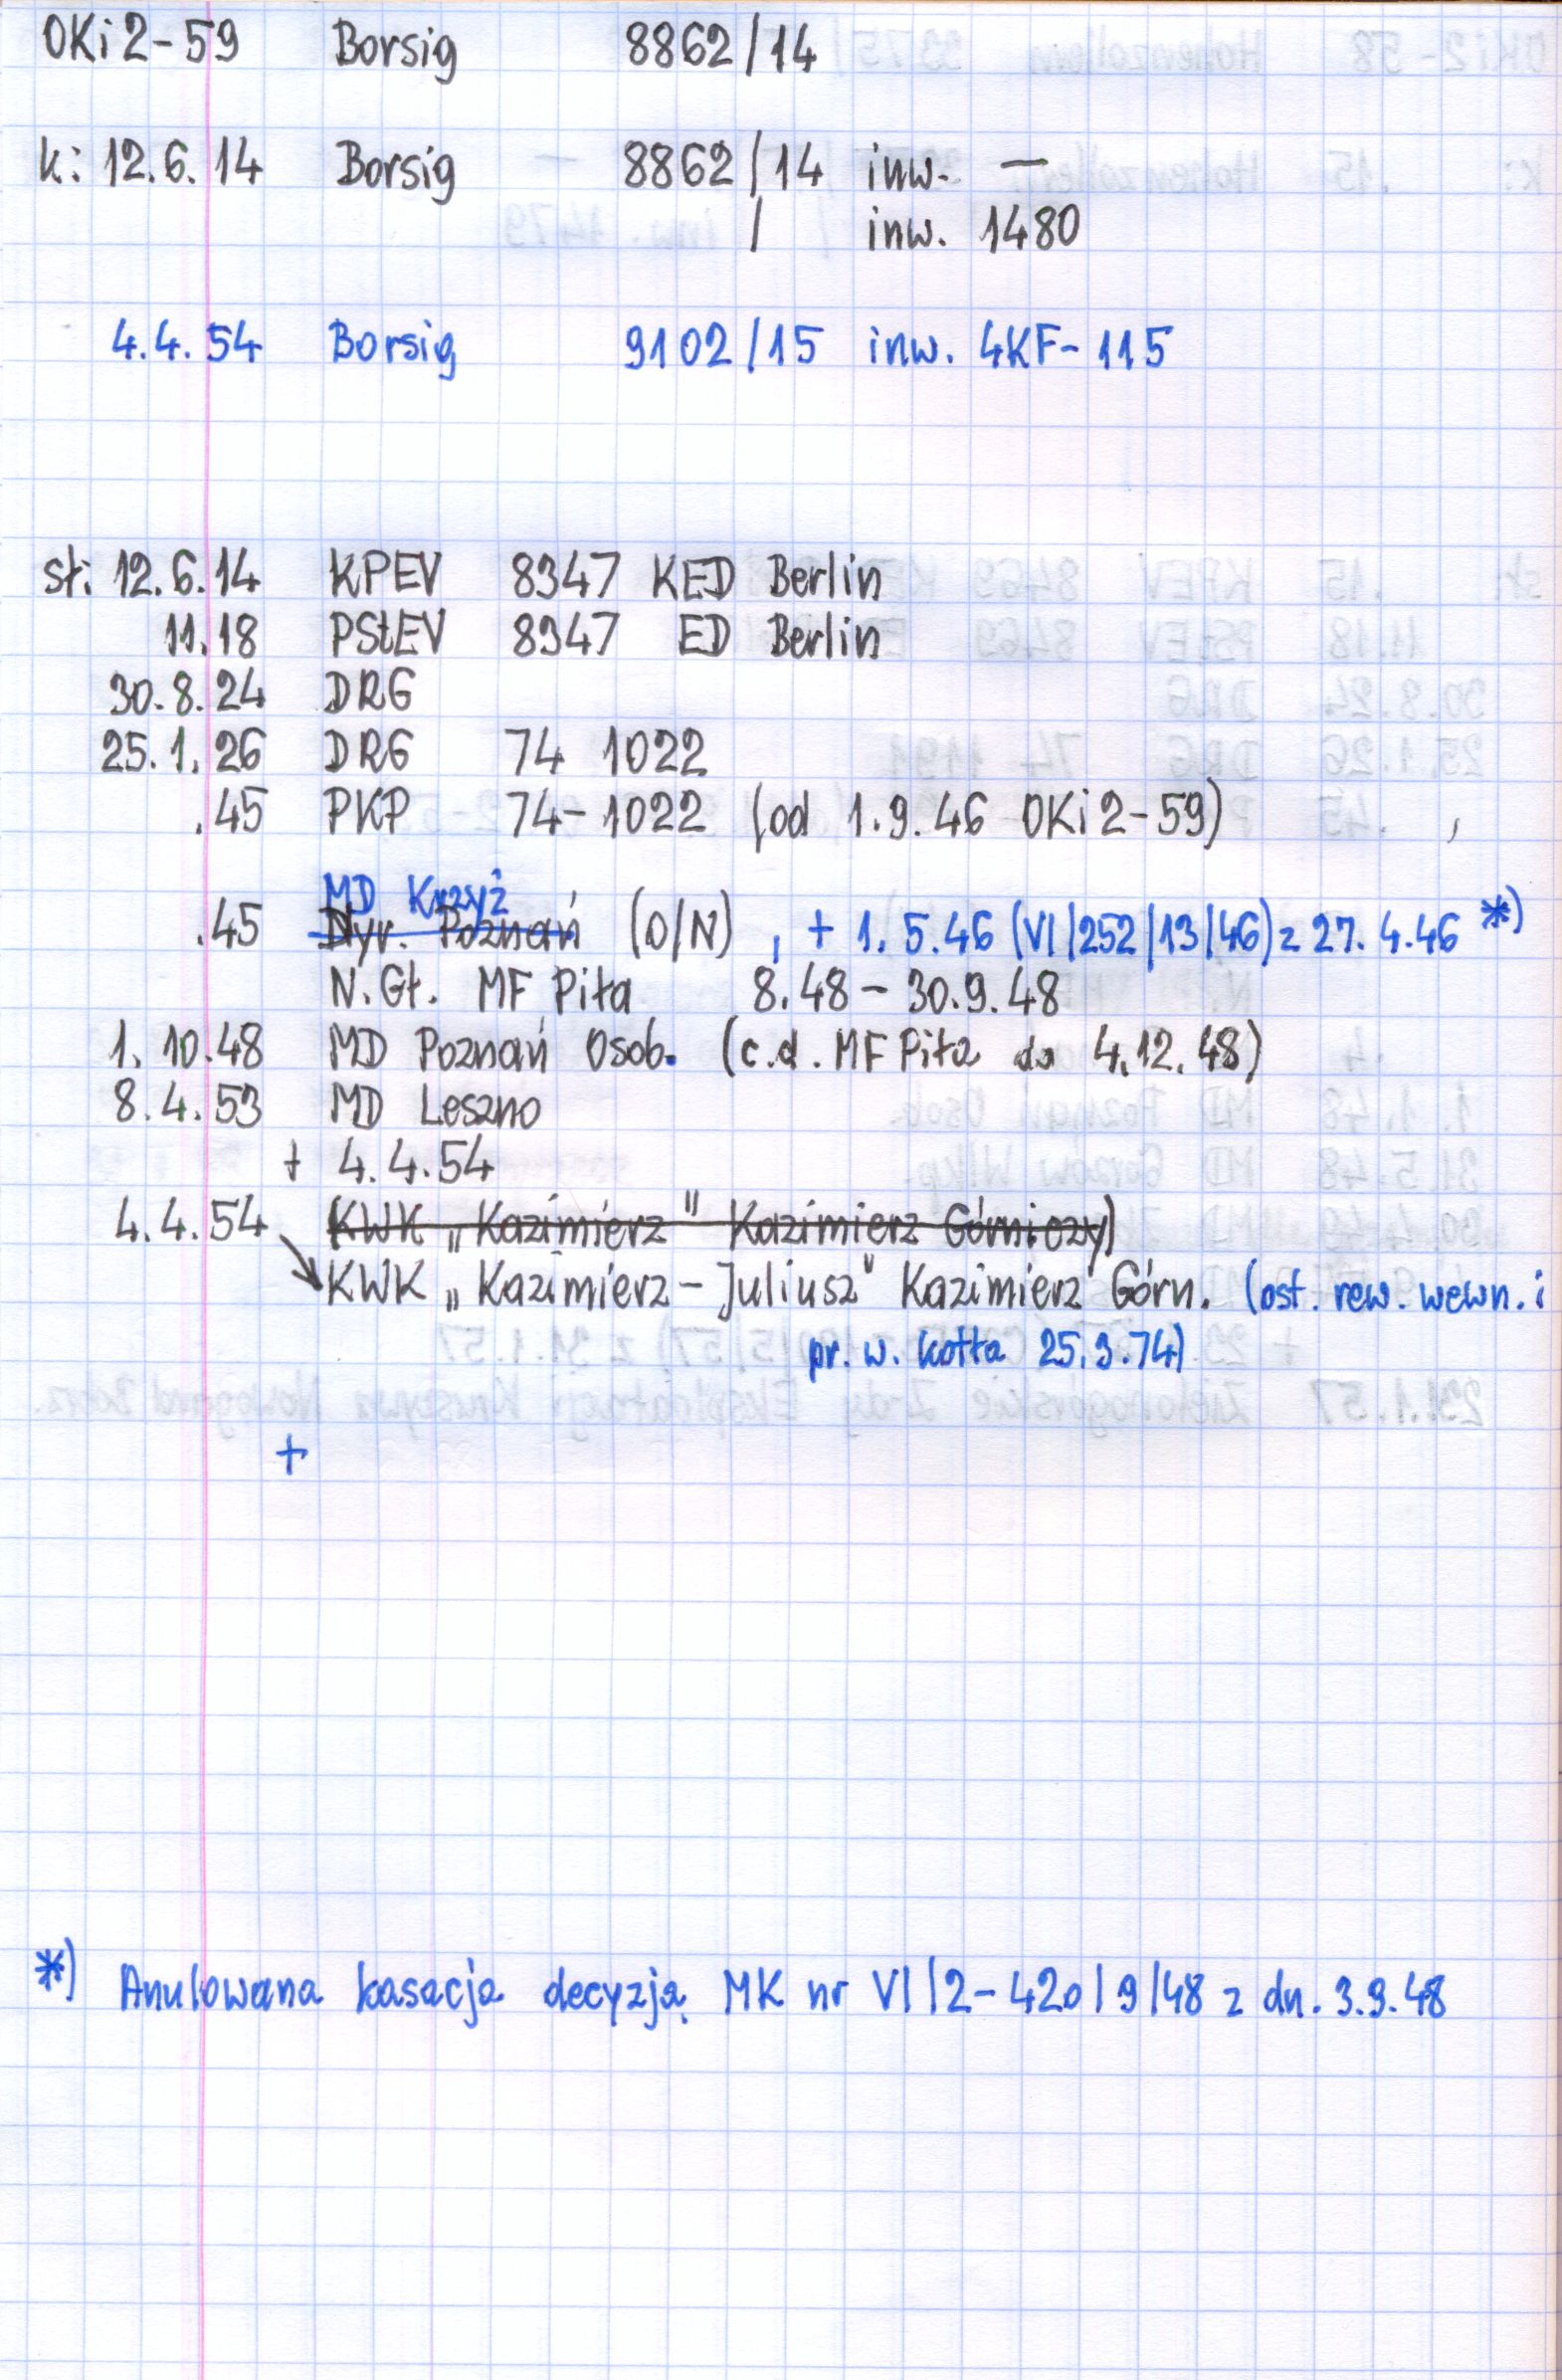 OKi2-59 Borsig 8862/14
k: 12.6.14 Borsig 8862/14 inw. —
/ inw. 1480
4.4.54 Borsig 9102/15 inw. 4KF-115
sł: 12.6.14 KPEV 8347 KED Berlin
11.18 PStEV 8347 ED Berlin
30.8.24 DRG
25.1.26 DRG 74 1022
.45 PKP 74-1022 (od 1.9.46 OKi2-59)
MD Krzyż
.45 Dyr. Poznań (O/N), + 1.5.46 (VI/252/13/46) z 27.4.46 *)
N.Gł. MF Piła 8.48 – 30.9.48
1.10.48 MD Poznań Osob. (c.d. MF Piła do 4.12.48)
8.4.53 MD Leszno
+ 4.4.54
4.4.54 (KWK „Kazimierz" Kazimierz Górniczy)
KWK „Kazimierz-Juliusz" Kazimierz Górn. (ost. rew. wewn. i
pr. w. kotła 25.9.74)
+
*) Anulowana kasacja decyzją MK nr VI/2-420/9/48 z dn. 3.9.48